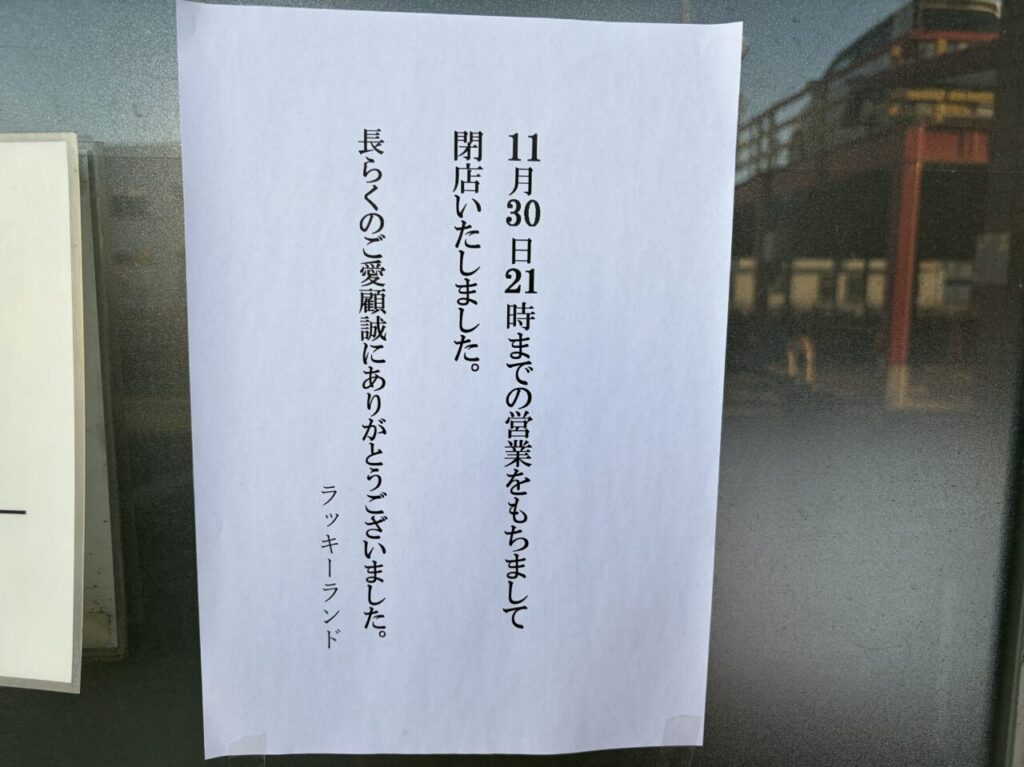 11月30日21時までの営業をもちまして
閉店いたしました。
長らくのご愛顧誠にありがとうございました。
ラッキーランド